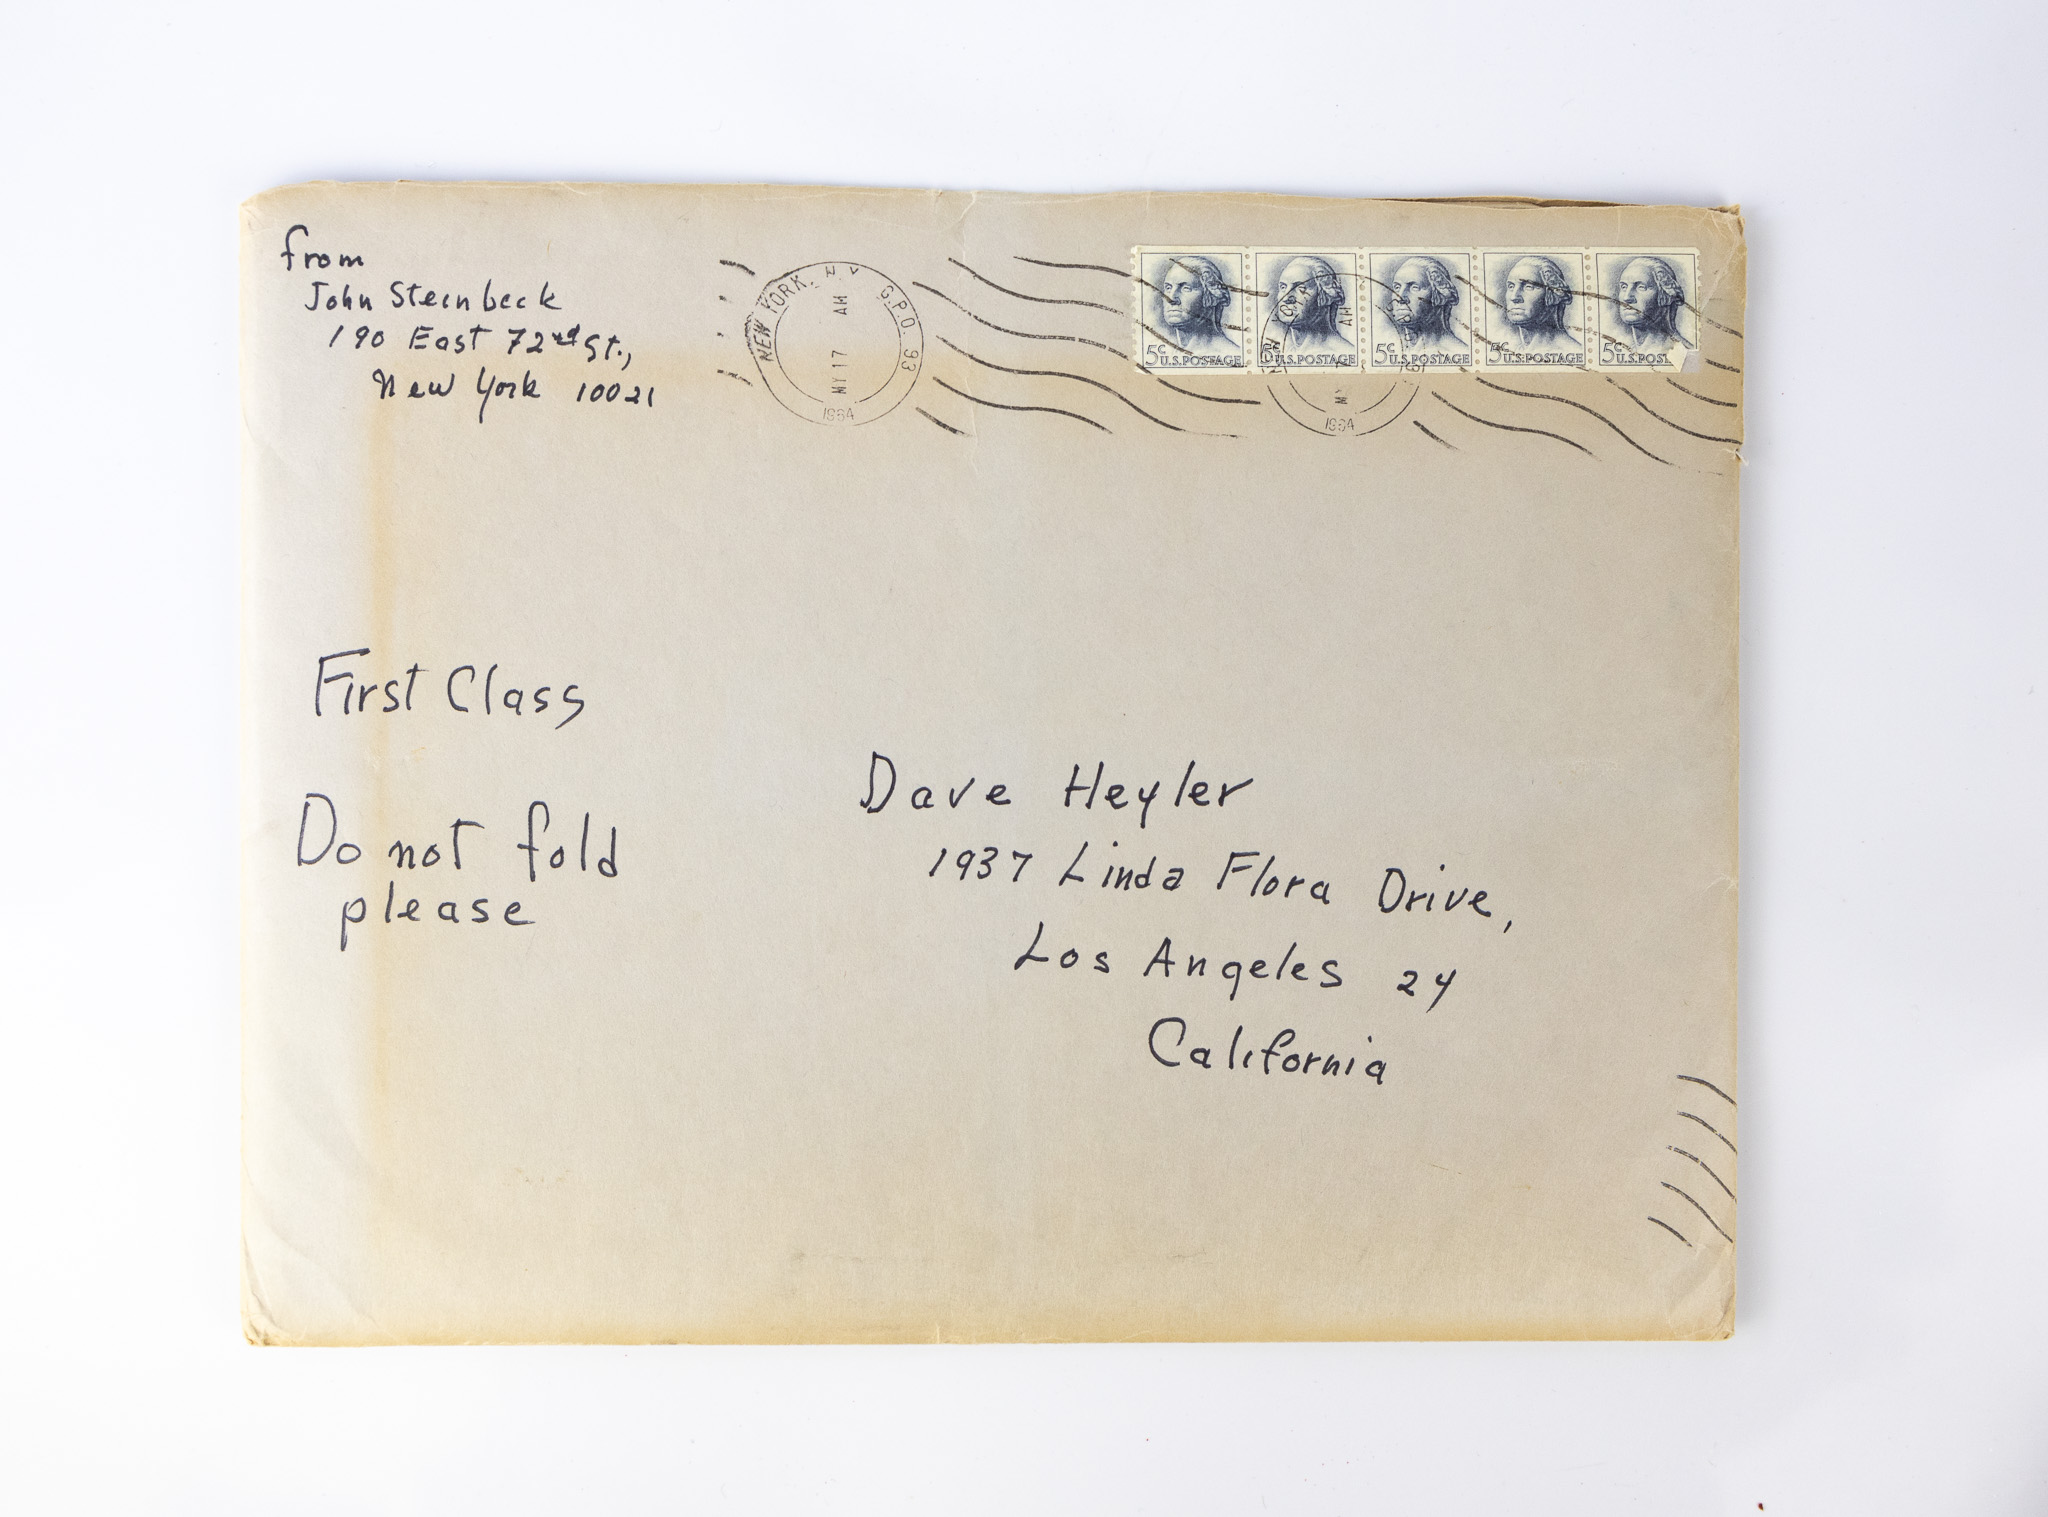 from
John Steinbeck
190 East 72nd St.,
New York 10021
NEW YORK, N Y G.P.O. 93
MY 17 AM
1964
5¢ U.S. POSTAGE
5¢ U.S. POSTAGE
5¢ U.S. POSTAGE
5¢ U.S. POSTAGE
5¢ U.S. POST
1964
First Class
Do not fold
please
Dave Heyler
1937 Linda Flora Drive,
Los Angeles 24
California